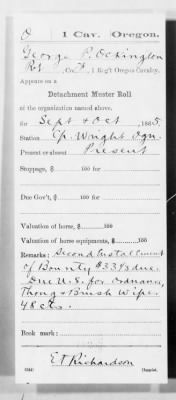 O | 1 Cav. | Oregon.
George P. Dckington
Pvt, Co. K, 1 Reg't Oregon Cavalry.
Appears on a
Detachment Muster Roll
of the organization named above,
for Sept & Oct, 1865
Station Cp. Wright Ogn.
Present or absent Present
Stoppage, $ 100 for
Due Gov't, $ 100 for
Valuation of horse, $ 100
Valuation of horse equipments, $ 100
Remarks: Second Installment
of Bounty $33⅓ due.
Due U.S. for Ordnance
Thong & Brush Wiper
48 cts.
Book mark:
E T Richardson
Copyist.